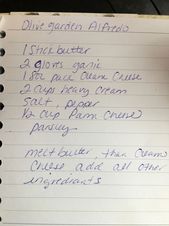 Olive garden Alfredo
1 Stick butter
2 cloves garlic
1 8oz pack Cream Cheese
2 cups heavy cream
Salt, pepper
1/2 cup Parm Cheese
parsley
melt butter, than Cream
Cheese add all other
ingredients